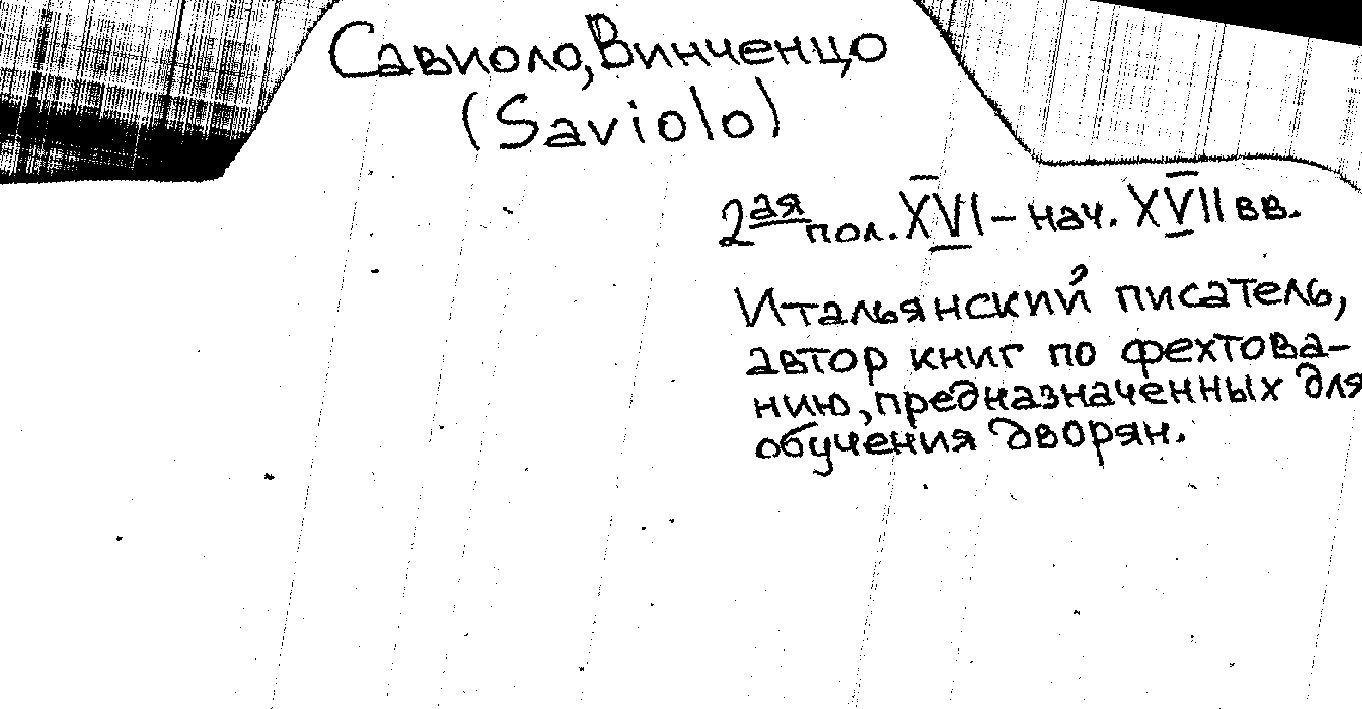 Савиоло, Винченцо
(Saviolo)
2ая пол. XVI – нач. XVII вв.
Итальянский писатель,
автор книг по фехтова-
нию, предназначенных для
обучения дворян.